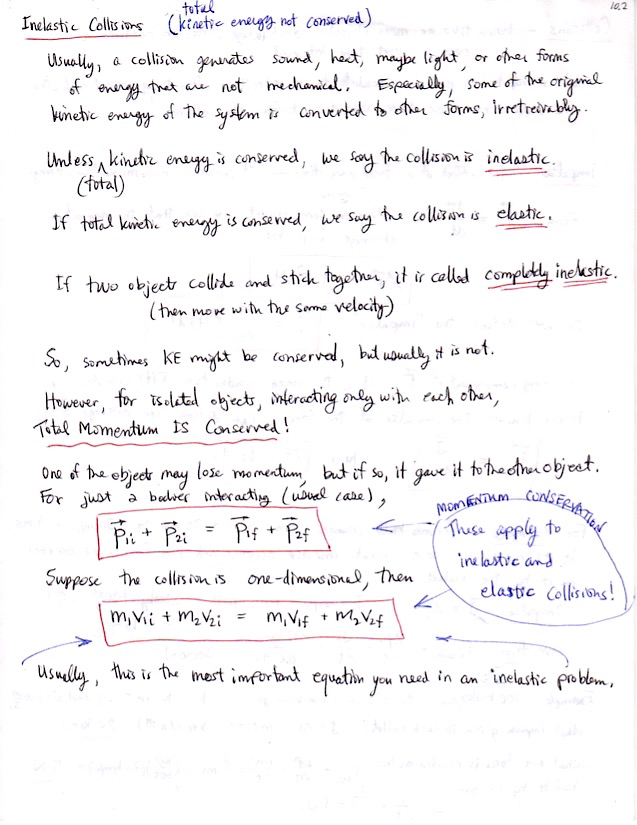 10.2
Inelastic Collisions (total kinetic energy not conserved)
Usually, a collision generates sound, heat, maybe light, or other forms
of energy that are not mechanical. Especially, some of the original
kinetic energy of the system is converted to other forms, irretreivably.
Unless (total) kinetic energy is conserved, we say the collision is inelastic.
If total kinetic energy is conserved, we say the collision is elastic.
If two objects collide and stick together, it is called completely inelastic.
(then move with the same velocity)
So, sometimes KE might be conserved, but usually it is not.
However, for isolated objects, interacting only with each other,
Total Momentum IS Conserved!
One of the objects may lose momentum, but if so, it gave it to the other object.
For just 2 bodies interacting (usual case),
MOMENTUM CONSERVATION
P⃗1i + P⃗2i = P⃗1f + P⃗2f
These apply to
inelastic and
elastic collisions!
Suppose the collision is one-dimensional, then
m1V1i + m2V2i = m1V1f + m2V2f
Usually, this is the most important equation you need in an inelastic problem.